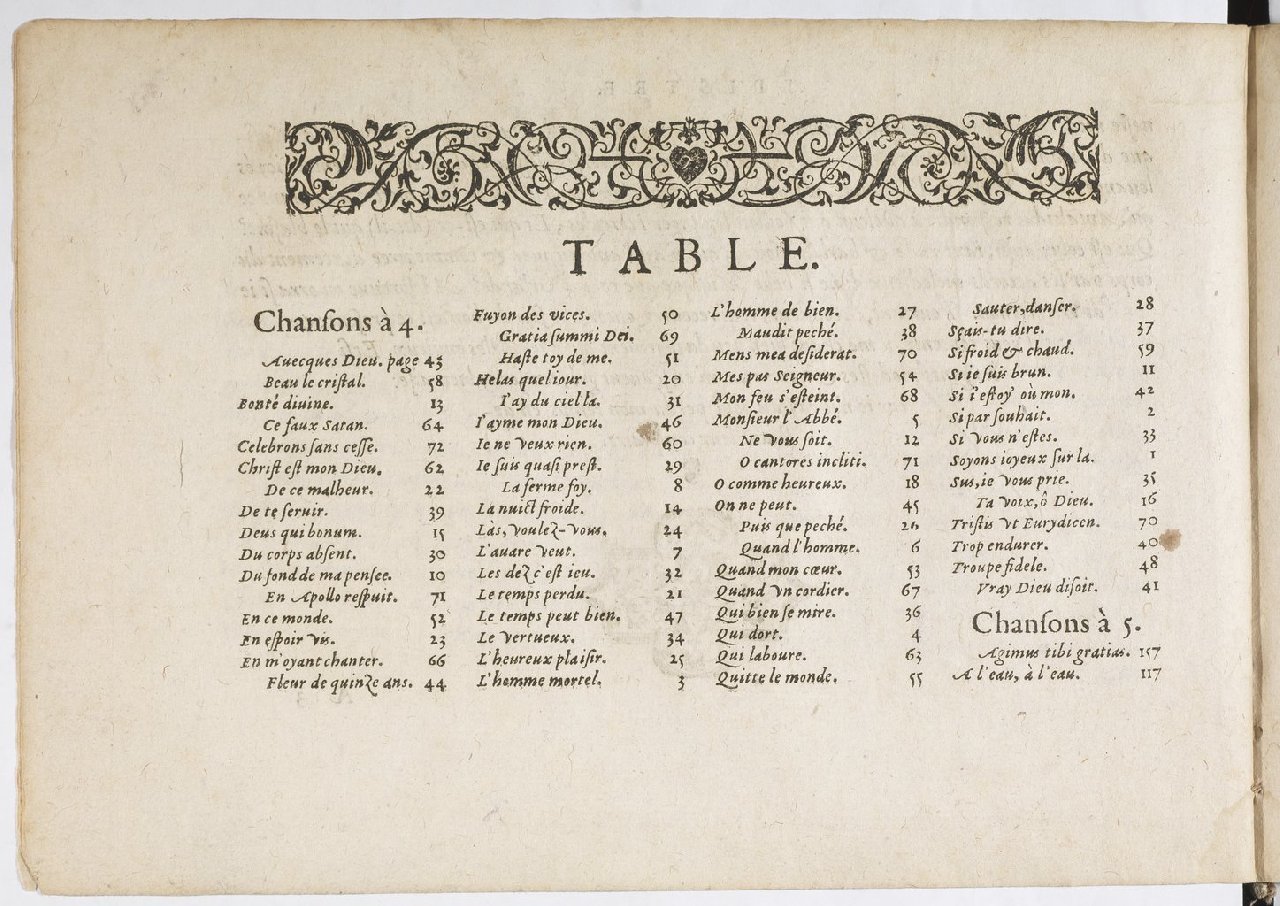 TABLE.
Chanſons à 4.
Auecques Dieu. page 43
Beau le criſtal. 58
Bonté diuine. 13
Ce faux Satan. 64
Celebrons ſans ceſſe. 72
Chriſt eſt mon Dieu. 62
De ce malheur. 22
De te ſeruir. 39
Deus qui bonum. 15
Du corps abſent. 30
Du fond de ma penſee. 10
En Apollo reſpuit. 71
En ce monde. 52
En eſpoir vis. 23
En m'oyant chanter. 66
Fleur de quinze ans. 44
Fuyon des vices. 50
Gratia ſummi Dei. 69
Haſte toy de me. 51
Helas quel iour. 20
I'ay du ciel la. 31
I'ayme mon Dieu. 46
Ie ne veux rien. 60
Ie ſuis quaſi preſt. 29
La ferme foy. 8
La nuict froide. 14
Làs, voulez-vous. 24
L'auare veut. 7
Les dez c'eſt ieu. 32
Le temps perdu. 21
Le temps peut bien. 47
Le vertueux. 34
L'heureux plaiſir. 25
L'homme mortel. 3
L'homme de bien. 27
Maudit peché. 38
Mens mea deſiderat. 70
Mes pas Seigneur. 54
Mon feu s'eſteint. 68
Monſieur l'Abbé. 5
Ne vous ſoit. 12
O cantores incliti. 71
O comme heureux. 18
On ne peut. 45
Puis que peché. 26
Quand l'homme. 6
Quand mon cœur. 53
Quand vn cordier. 67
Qui bien ſe mire. 36
Qui dort. 4
Qui laboure. 63
Quitte le monde. 55
Sauter, danſer. 28
Sçais-tu dire. 37
Si froid & chaud. 59
Si ie ſuis brun. 11
Si i'eſtoy' où mon. 42
Si par ſouhait. 2
Si vous n'eſtes. 33
Soyons ioyeux ſur la. 1
Sus, ie vous prie. 35
Ta voix, ô Dieu. 16
Triſtis vt Eurydicen. 70
Trop endurer. 40
Troupe fidele. 48
Vray Dieu diſoit. 41
Chanſons à 5.
Agimus tibi gratias. 157
A l'eau, à l'eau. 117